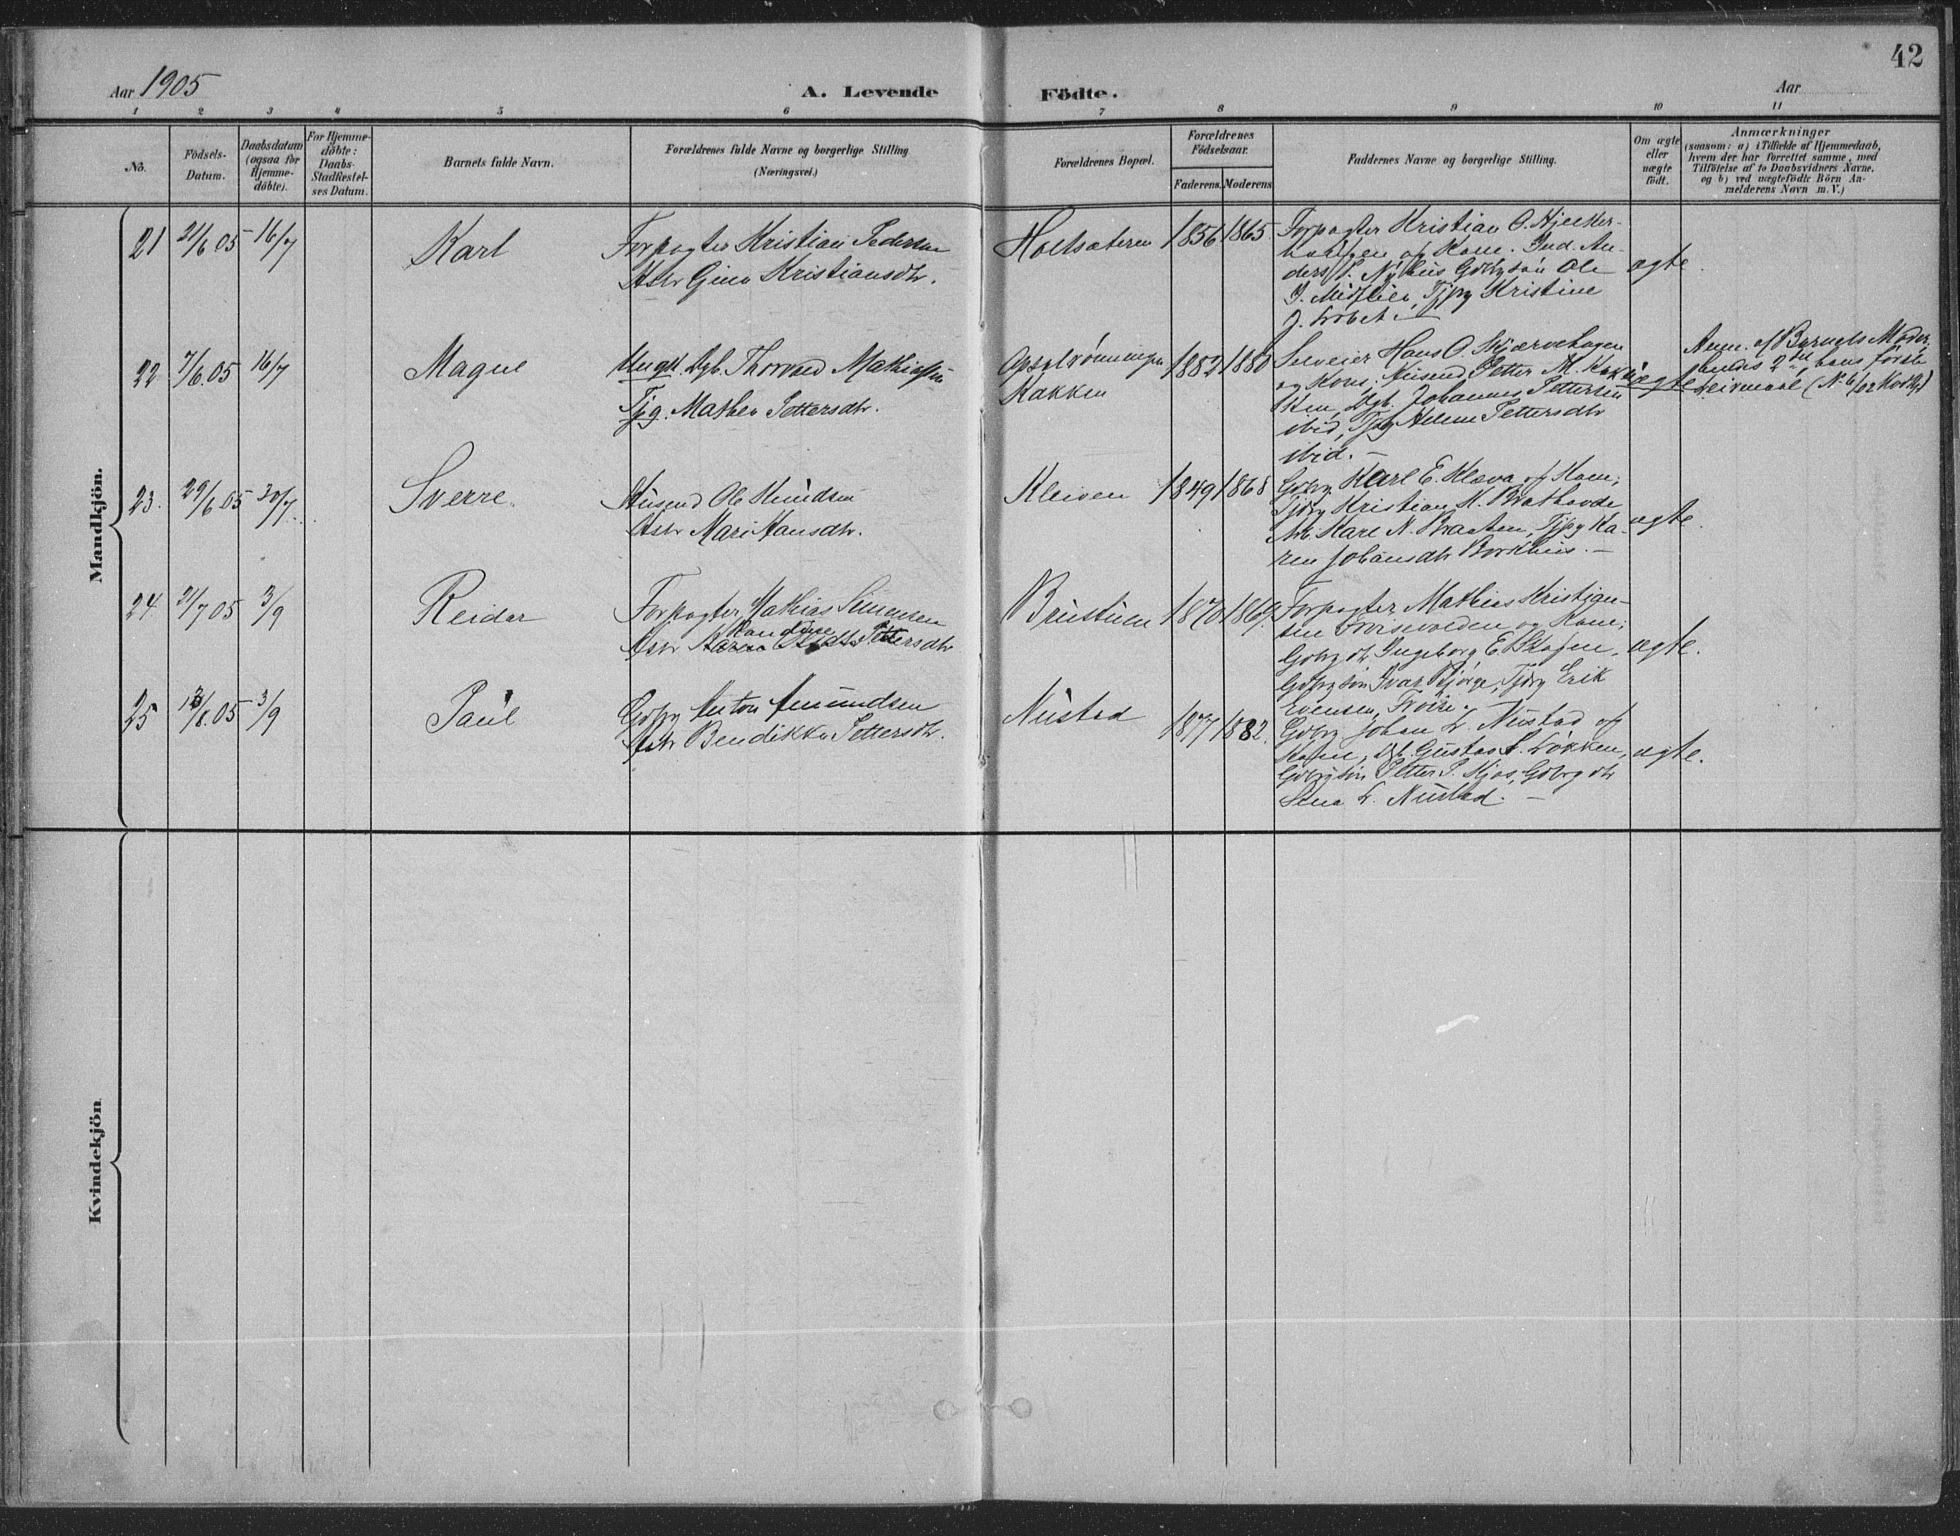 42
Aar 1905
A. Levende Födte.
Aar
1 2 3 4 5 6 7 8 9 10 11
No.
Födsels-Datum.
Daabsdatum (ogsaa for Hjemme-döbte).
For Hjemme-döbte: Daabs-Stadfæstel-ses Datum.
Barnets fulde Navn.
Forældrenes fulde Navne og borgerlige Stilling (Næringsvei.)
Forældrenes Bopæl.
Forældrenes Födselsaar.
Faderens. Moderens
Faddernes Navne og borgerlige Stilling.
Om ægte eller uægte födt.
Anmærkninger
(saasom: a) i Tilfælde af Hjemmedaab,
hvem der har forrettet samme, med
Tilföielse af to Daabsvidners Navne,
og b) ved uægtefödte Börn An-
melderens Navn m. V.)
Mandkjön.
21 21/6 05 16/7 Karl
Forpagter Kristian Pedersen
Hstr Gina Kristiansdtr.
Holtsæteren 1856 1865.
Forpagter Kristian O. Hjelter-
haugen og Kone, Ind. An-
ders
Ole
Kristine
ægte.
22 7/6 05 16/7 Magne
Ungk. Dgb. Thorvald Mathiassen
Tjpg. Mathea Pettersdtr.
Opsalrönningen
Kakken
1882 1880
Selveier Hans O. Skjærvehagen
og Kone; Husmd Petter M. Kak-
ken, Dgb. Johannes Pettersen
ibid, Tjpg Helene Pettersdtr
ibid. —
uægte
Anm. af Barnets Moder.
hendes 2det, hans förste
Leiermaal
23. 29/6 05 30/7 Sverre.
Husmd Ole Knudsen
Hstr Mari Hansdtr.
Kleiven 1849 1868
Gdbrg. Karl E. Kleva og Kone;
Kristian H. Brathovde
Arb. Karl N. Braaten, Tjpg Ka-
ren Johansdtr Borkhus. —
ægte.
24. 21/7 05 3/9 Reidar
Forpagter Mathias Simensen
Hstr Randine Pettersdtr
Brustuen 1870 1869.
Forpagter Mathias Kristian-
sen og Kone;
Gdbrgdtr Ingeborg E.
Gdbrgsön Ivar Björge, Erik
Evensen, Fröise.
ægte.
25 13/8. 05 3/9 Paul
Gdbrg Anton Amundsen
Hstr Bendikke Pettersdtr.
Nustad 1877 1882.
Gdbrg. Johan L. Nustad og
Kone, Gustav Lökken,
Gdbrgsön Petter P. Kjos, Gdbrgdtr
Lina L. Nustad. —
ægte.
Kvindekjön